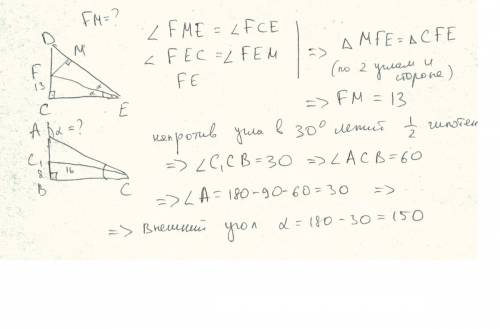 FM = ?
∠FME = ∠FCE
∠FEC = ∠FEM
FE
=> △MFE = △CFE
(по 2 углам и
стороне)
=> FM = 13
D
M
F
13
C
E
α
α
A
α = ?
C₁
8
16
B
C
напротив угла в 30° лежит 1/2 гипотен
=> ∠C₁CB = 30 => ∠ACB = 60
=> ∠A = 180 - 90 - 60 = 30 =>
=> Внешний угол α = 180 - 30 = 150